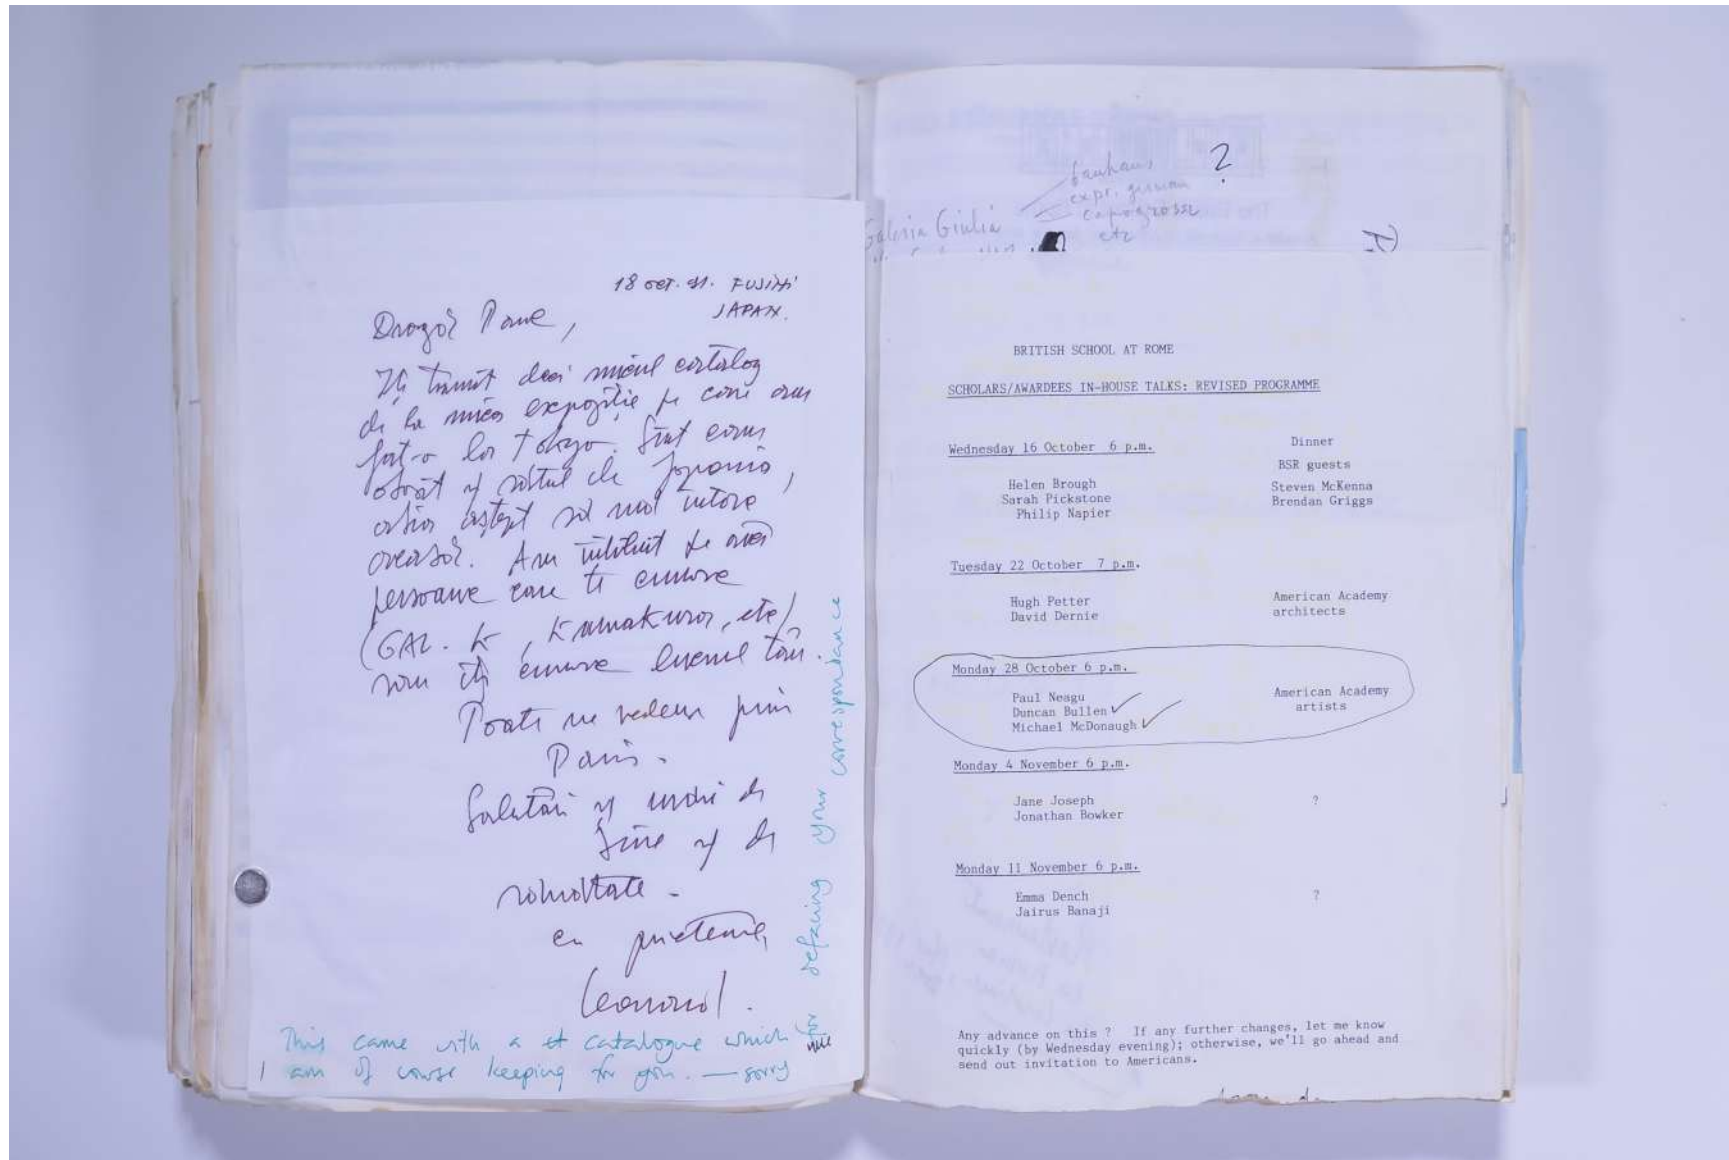 18 oct. 91. FUJIMI
JAPAN.
Dragă Paul,
Îți trimit deci micul catalog
de la mica expoziție pe care am
făt-o la Tokyo. Sînt
obosit și sătul de Japonia,
abia aștept să mă întorc
acasă. Am întîlnit pe aici
persoane care te cunosc
(GAL. K, Kamakura, etc)
sau îți cunosc lucrul tău.
Poate ne vedem prin
Paris.
Salutări și urări de
bine și de
sănătate -
cu prietenie,
This came with a catalogue which
I am of course keeping for you. — sorry
for defacing your correspondance
bauhaus
expr. german
capogrossi
etc
?
Galeria Giulia
BRITISH SCHOOL AT ROME
SCHOLARS/AWARDEES IN-HOUSE TALKS: REVISED PROGRAMME
Wednesday 16 October 6 p.m.
Dinner
BSR guests
Helen Brough
Steven McKenna
Sarah Pickstone
Brendan Griggs
Philip Napier
Tuesday 22 October 7 p.m.
Hugh Petter
American Academy
David Dernie
architects
Monday 28 October 6 p.m.
Paul Neagu
American Academy
Duncan Bullen
artists
Michael McDonaugh
Monday 4 November 6 p.m.
Jane Joseph
?
Jonathan Bowker
Monday 11 November 6 p.m.
Emma Dench
?
Jairus Banaji
Any advance on this ? If any further changes, let me know
quickly (by Wednesday evening); otherwise, we'll go ahead and
send out invitation to Americans.